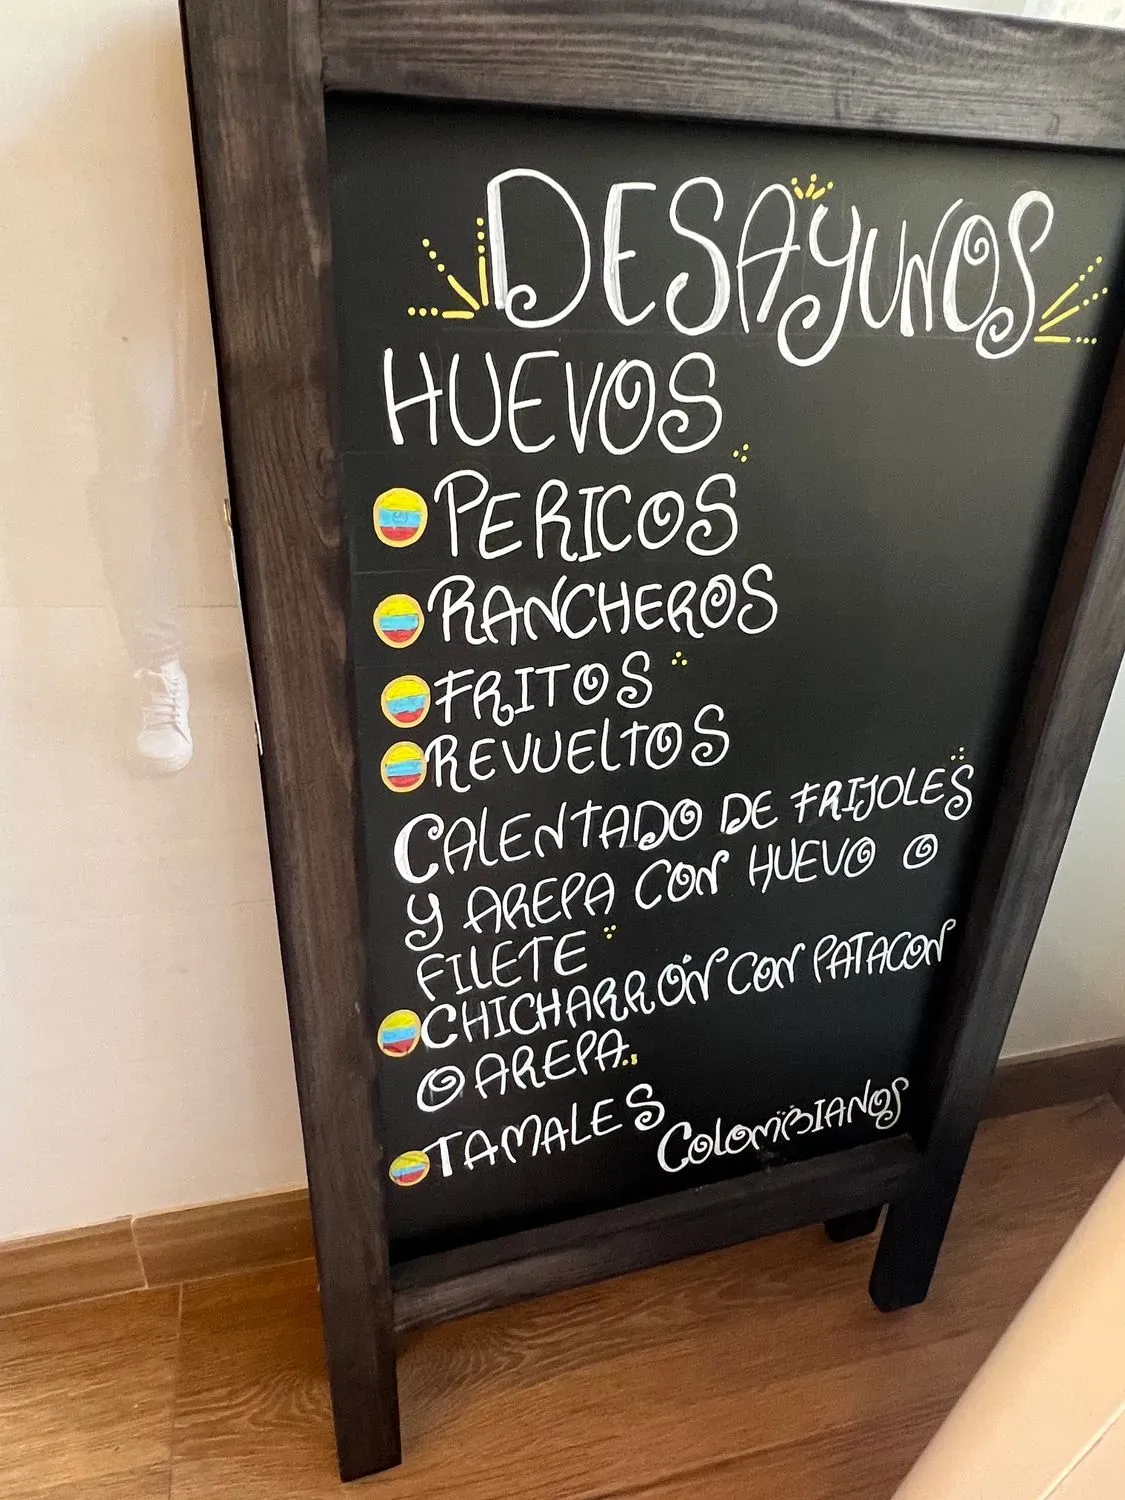 DESAYUNOS
HUEVOS
PERICOS
RANCHEROS
FRITOS
REVUELTOS
CALENTADO DE FRIJOLES
Y AREPA CON HUEVO O
FILETE
CHICHARRÓN CON PATACON
O AREPA
TAMALES COLOMBIANOS